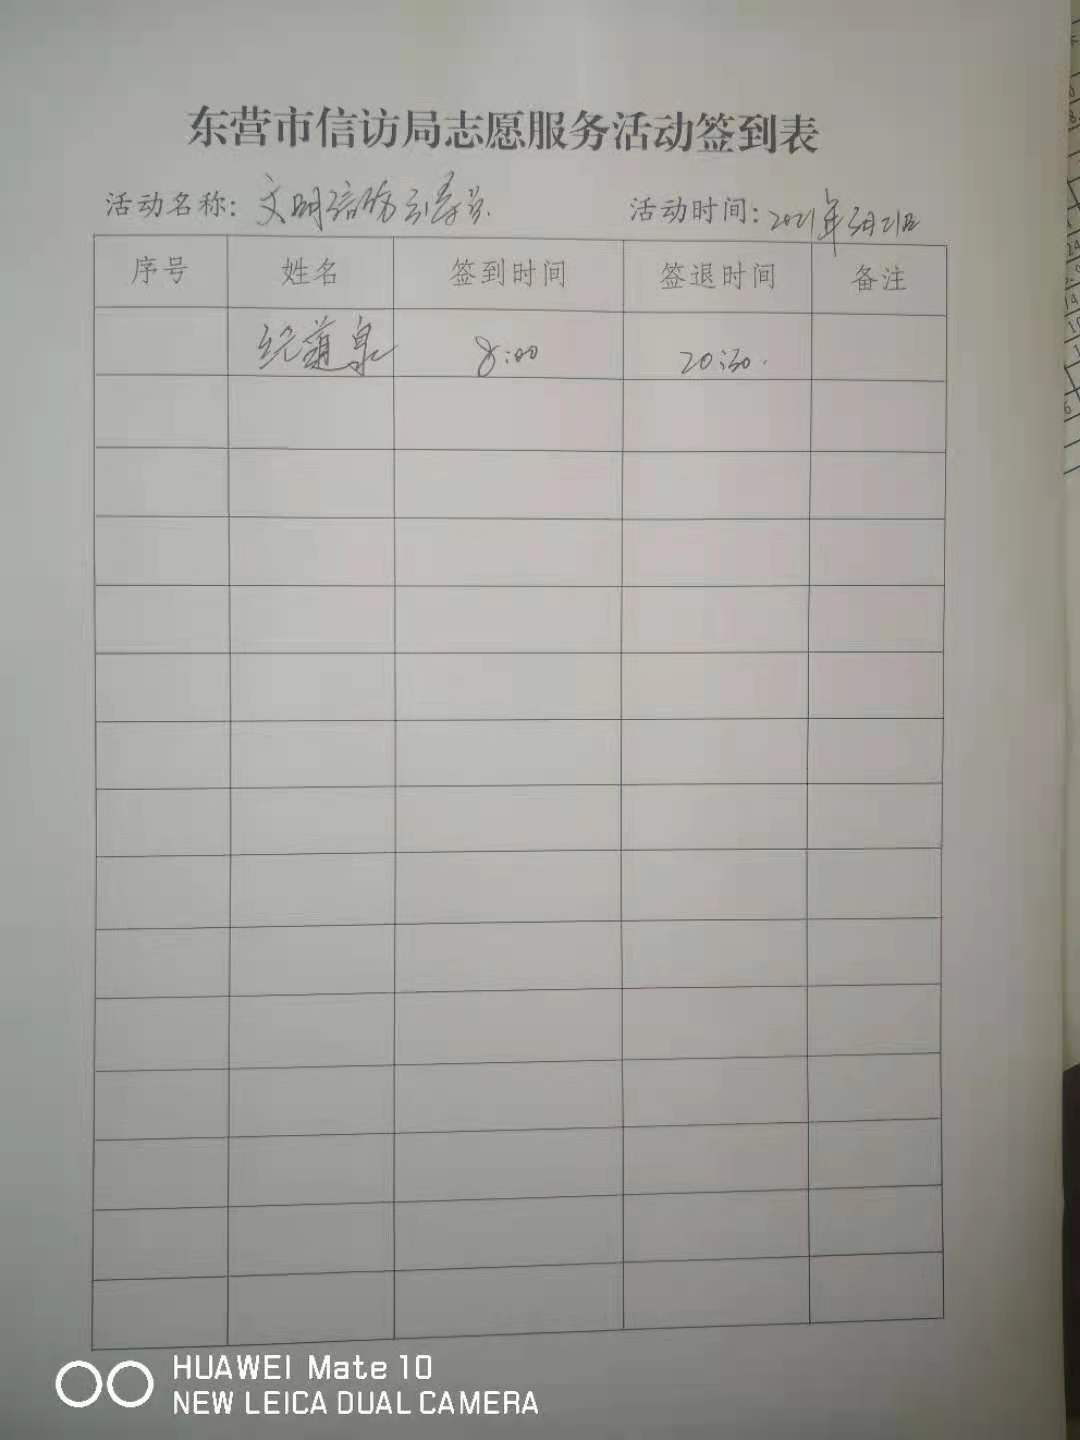 东营市信访局志愿服务活动签到表
活动名称：文明信访引导员 活动时间：2021年5月21日
序号 姓名 签到时间 签退时间 备注
8:00 20:30
HUAWEI Mate 10
NEW LEICA DUAL CAMERA